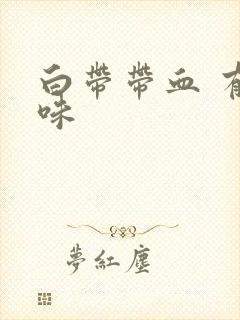 白带帶血 有
味
夢紅塵